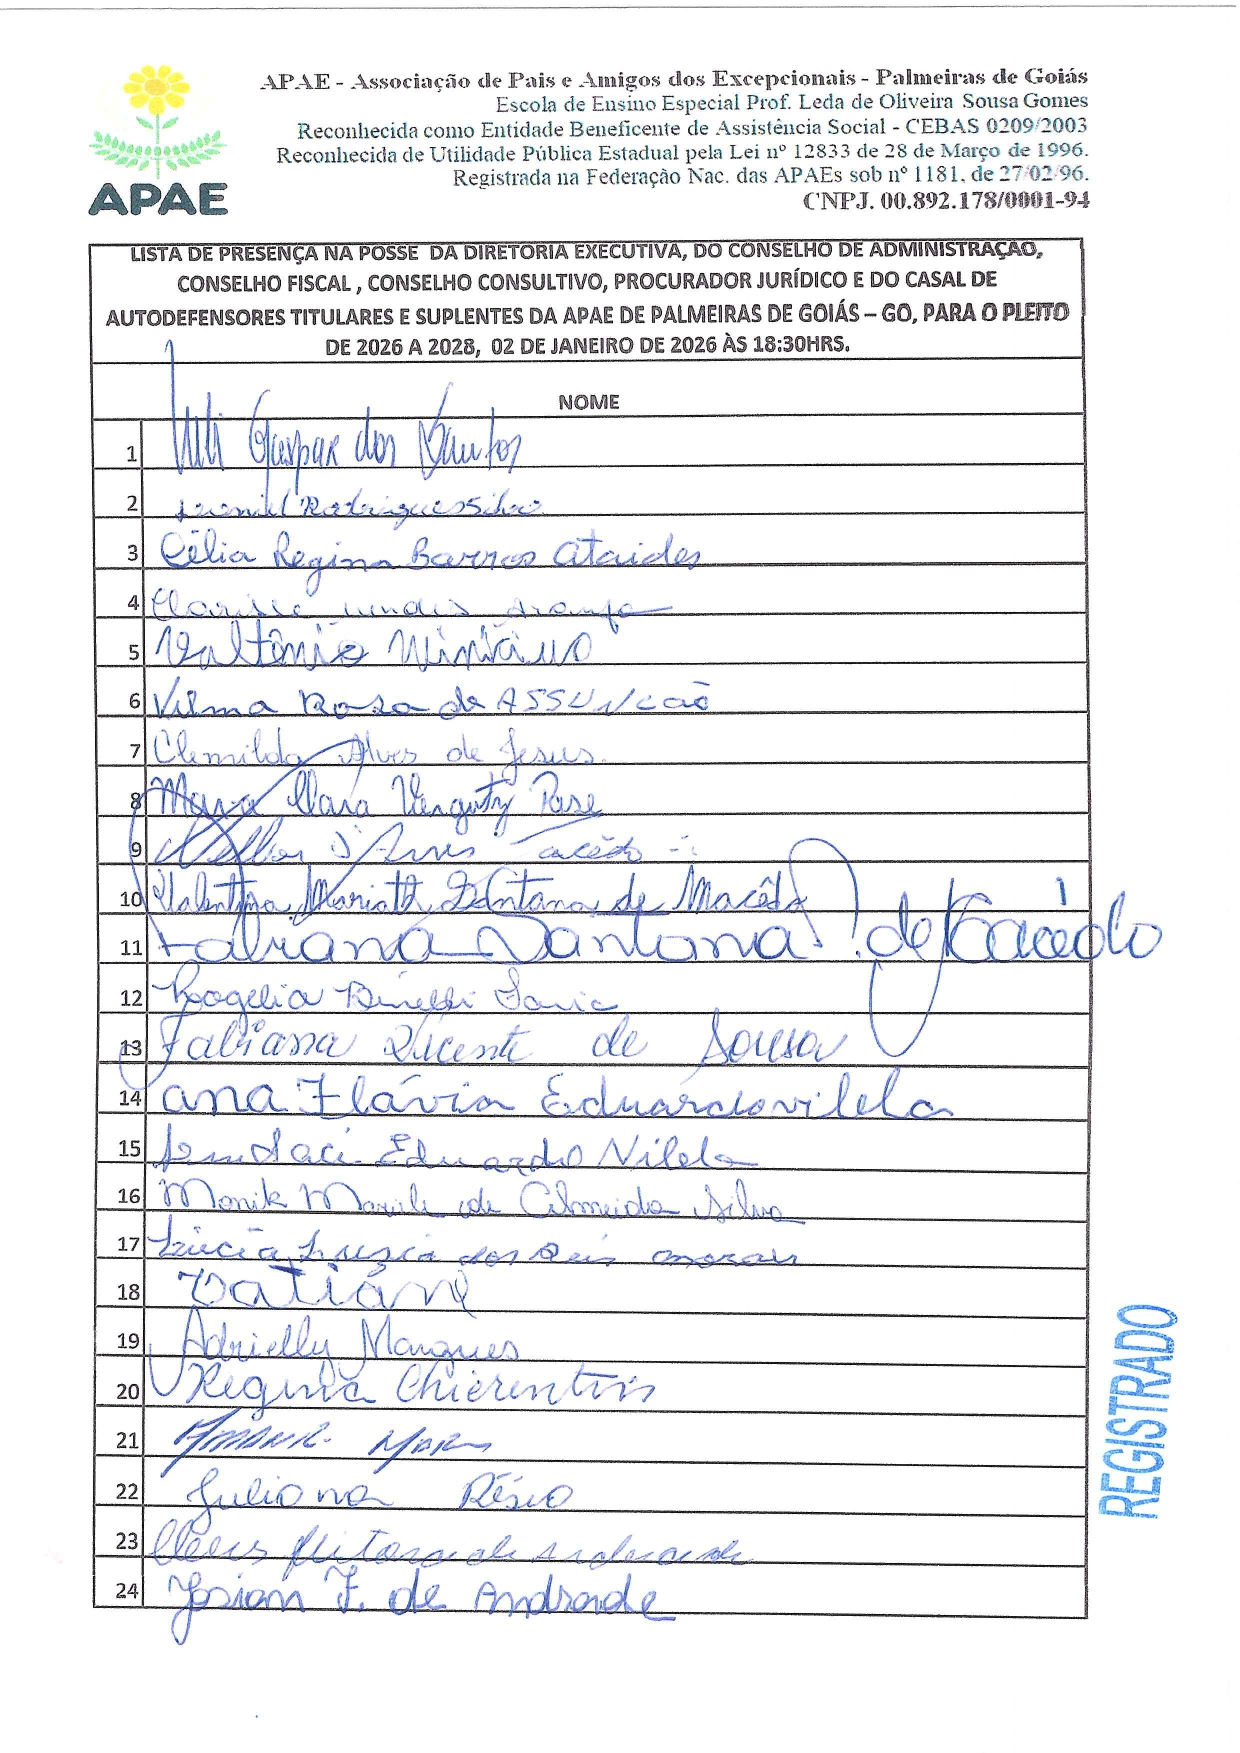 APAE - Associação de Pais e Amigos dos Excepcionais - Palmeiras de Goiás
Escola de Ensino Especial Prof. Leda de Oliveira Sousa Gomes
Reconhecida como Entidade Beneficente de Assistência Social - CEBAS 0209/2003
Reconhecida de Utilidade Pública Estadual pela Lei nº 12833 de 28 de Março de 1996.
Registrada na Federação Nac. das APAEs sob nº 1181, de 27/02/96.
CNPJ. 00.892.178/0001-94
APAE
LISTA DE PRESENÇA NA POSSE DA DIRETORIA EXECUTIVA, DO CONSELHO DE ADMINISTRAÇÃO,
CONSELHO FISCAL , CONSELHO CONSULTIVO, PROCURADOR JURÍDICO E DO CASAL DE
AUTODEFENSORES TITULARES E SUPLENTES DA APAE DE PALMEIRAS DE GOIÁS – GO, PARA O PLEITO
DE 2026 A 2028, 02 DE JANEIRO DE 2026 ÀS 18:30HRS.
NOME
1 Gaspar dos Santos
2 Rodrigues Silva
3 Célia Regina Barros Ataides
4
5 Valtônio
6 Vilma Rosa de ASSUNção
7 Clemilda Alves de Jesus.
8 Clara
9
10 Valentina Santana de Macêdo
11 Fabiana Santana de Macêdo
12 Rogélia
13 Fabiana Vicente de Sousa
14 ana Flávia Eduardo vilela
15 Eduardo Vilela
16 Monik de Almeida Silva
17 Lúcia dos Reis morais
18 Tatiane
19 Adrielly Marques
20 Regina
21
22 Juliana
23
24 F. de Andrade
REGISTRADO